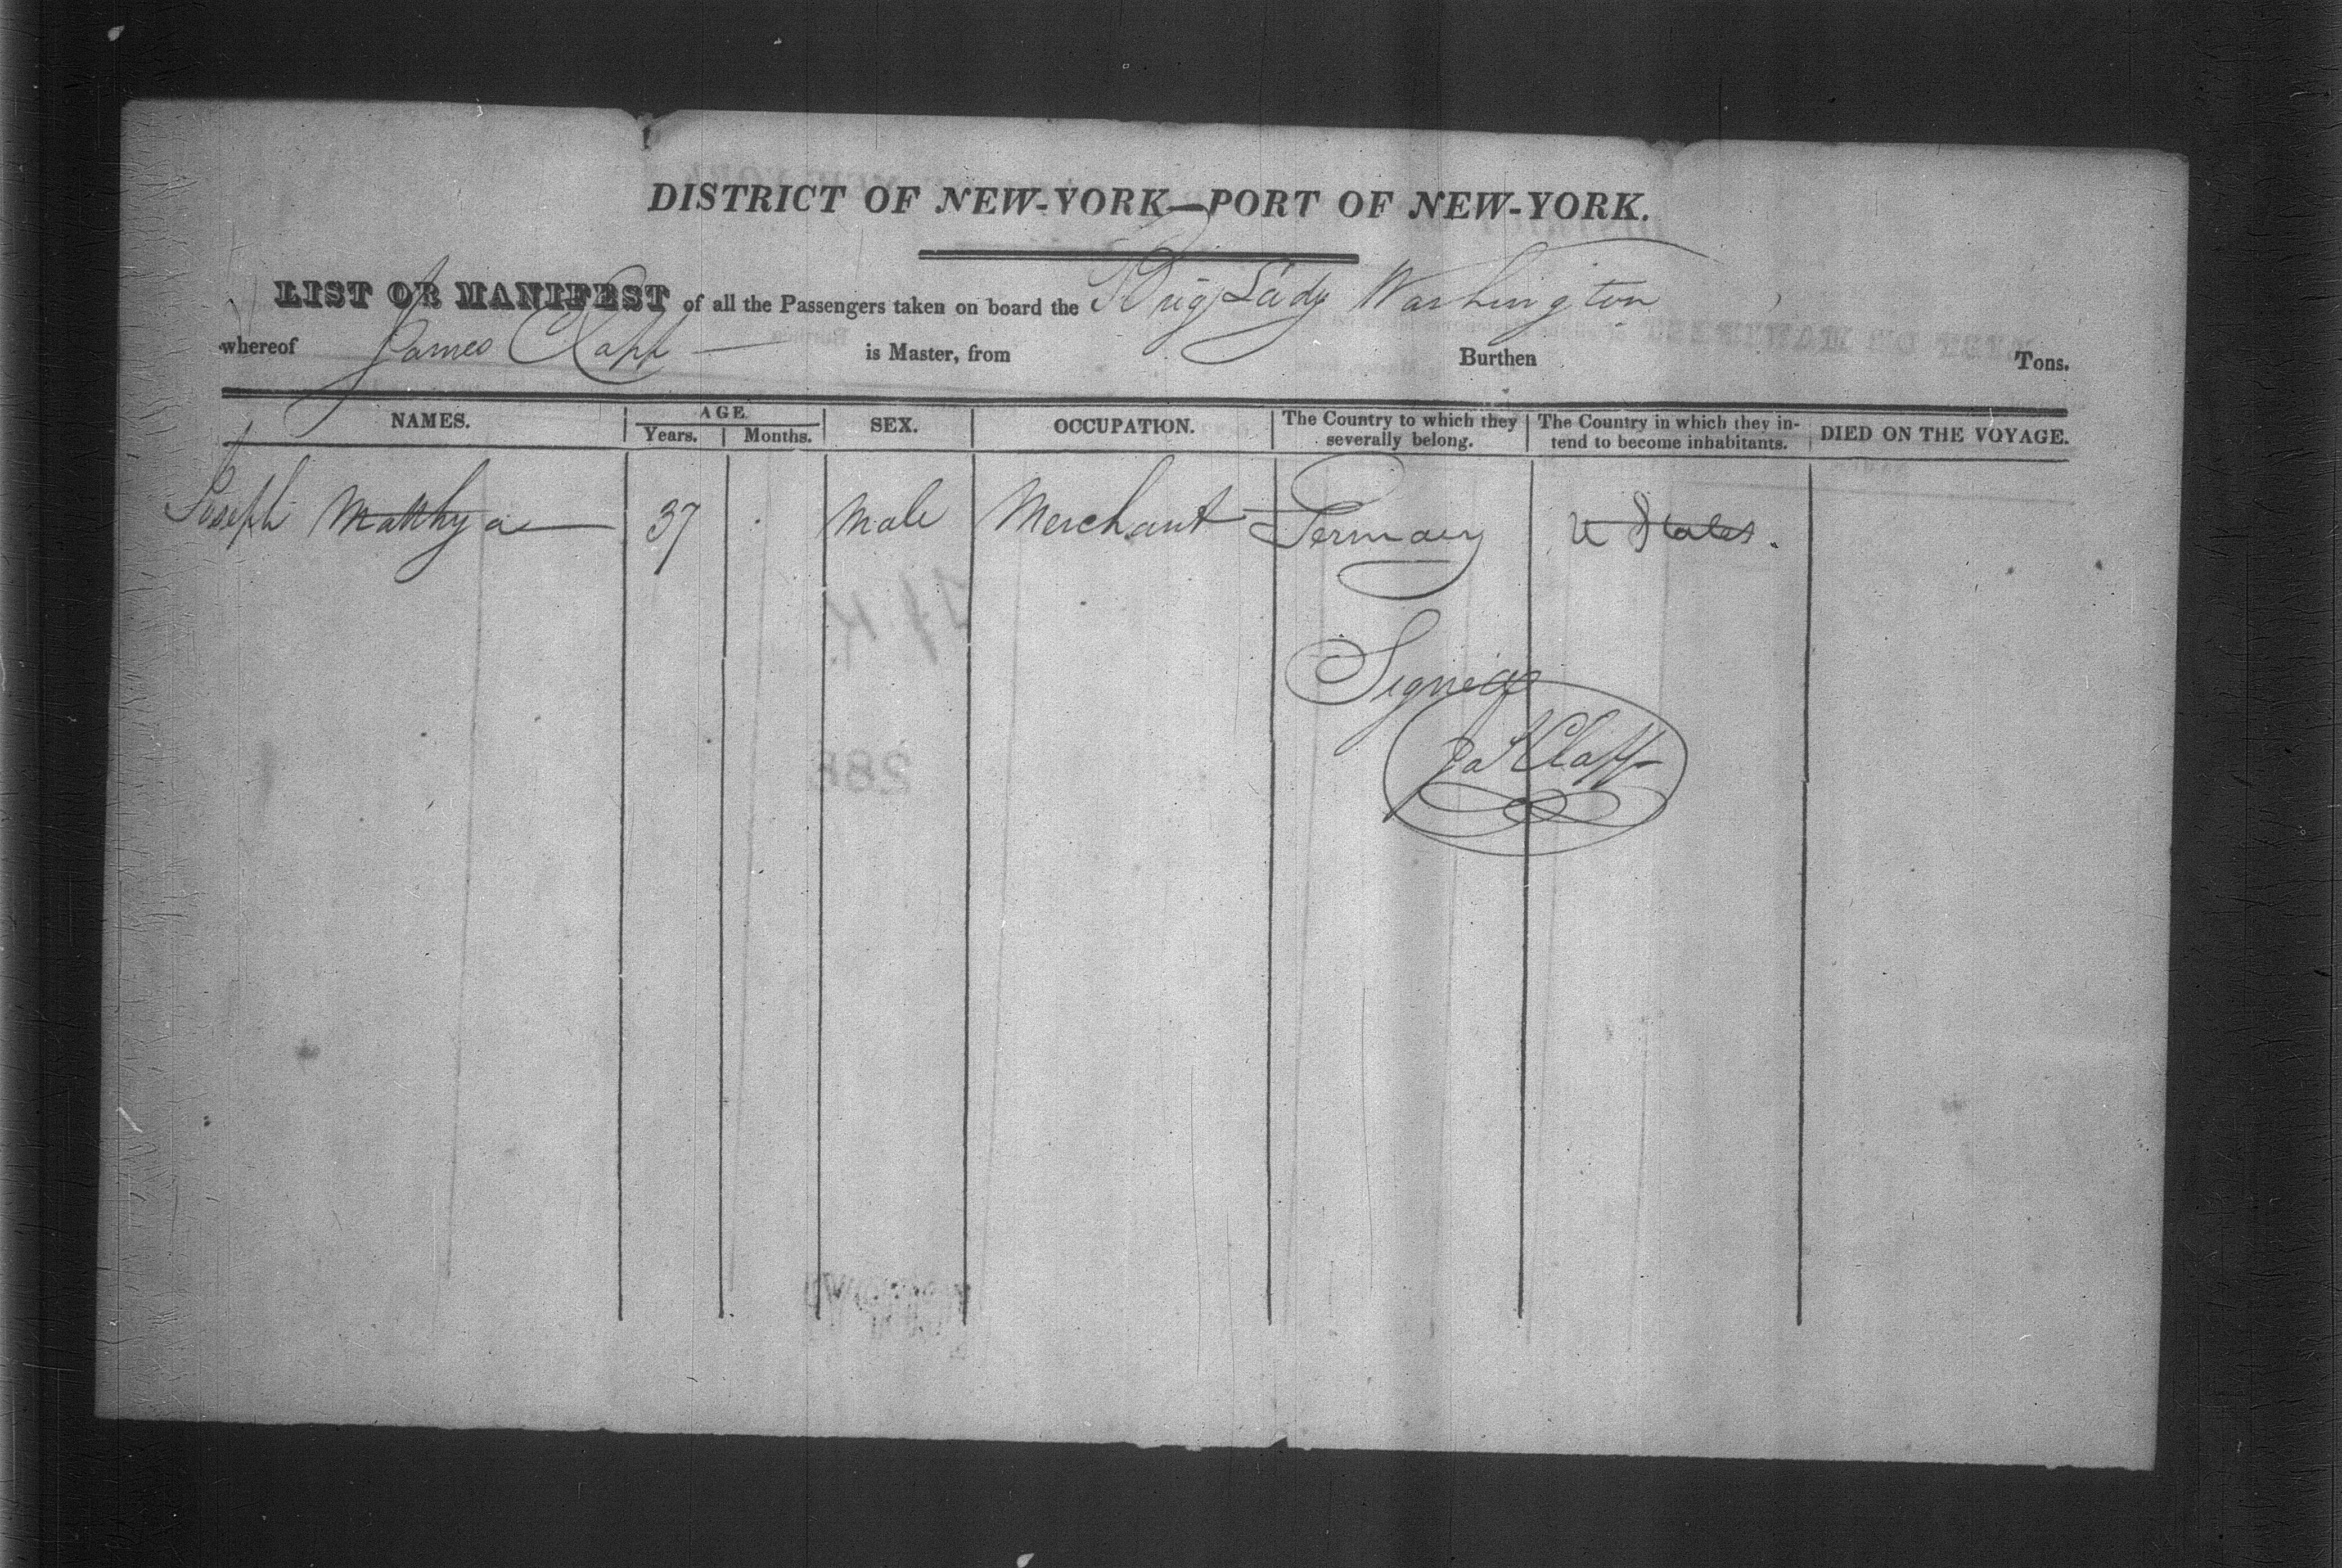 DISTRICT OF NEW-YORK—PORT OF NEW-YORK.
LIST OR MANIFEST of all the Passengers taken on board the Brig Lady Washington
whereof James Clapp is Master, from Burthen Tons.
NAMES. AGE Years. Months. SEX. OCCUPATION. The Country to which they severally belong. The Country in which they intend to become inhabitants. DIED ON THE VOYAGE.
Joseph 37 Male Merchant Germany U States.
Signed
Clapp